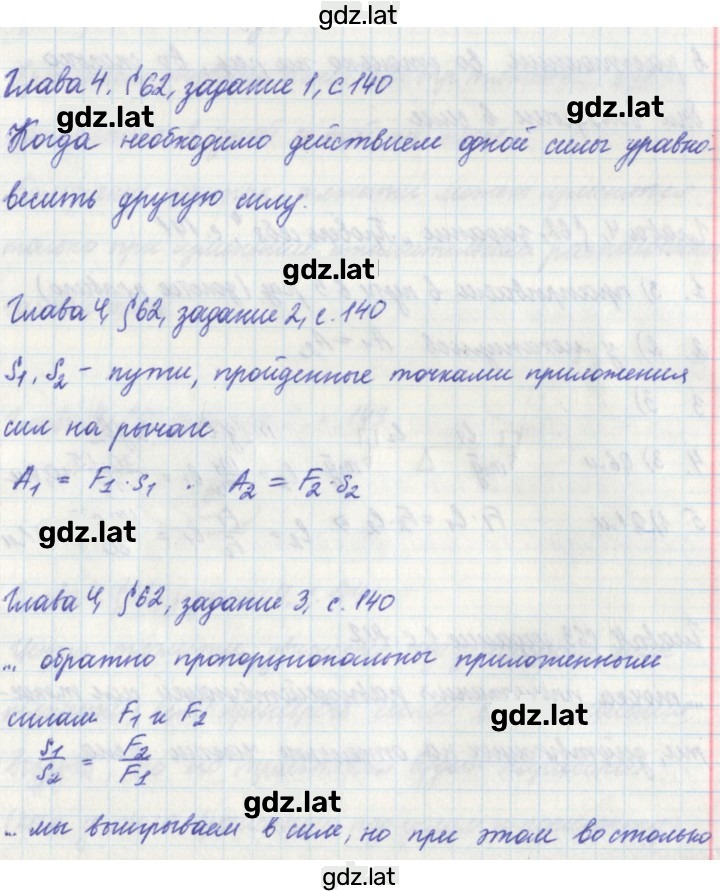 gdz.lat
Глава 4, §62, задание 1, с.140
gdz.lat
gdz.lat
Когда необходимо действием одной силы уравно-
весить другую силу.
gdz.lat
Глава 4, §62, задание 2, с.140
S1, S2 - пути, пройденные точками приложения
сил на рычаге
A1 = F1·s1 . A2 = F2·s2
gdz.lat
Глава 4, §62, задание 3, с.140
... обратно пропорциональны приложенным
силам F1 и F2
gdz.lat
s1/s2 = F2/F1
gdz.lat
... мы выигрываем в силе, но при этом во столько
gdz.lat